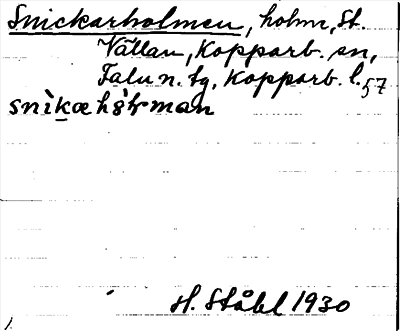 Snickarholmen, holm, St.
Vällan, Kopparb. sn,
Falu n. tg, Kopparb. l. 57
snìkæhòlman
H. Ståhl 1930
1.